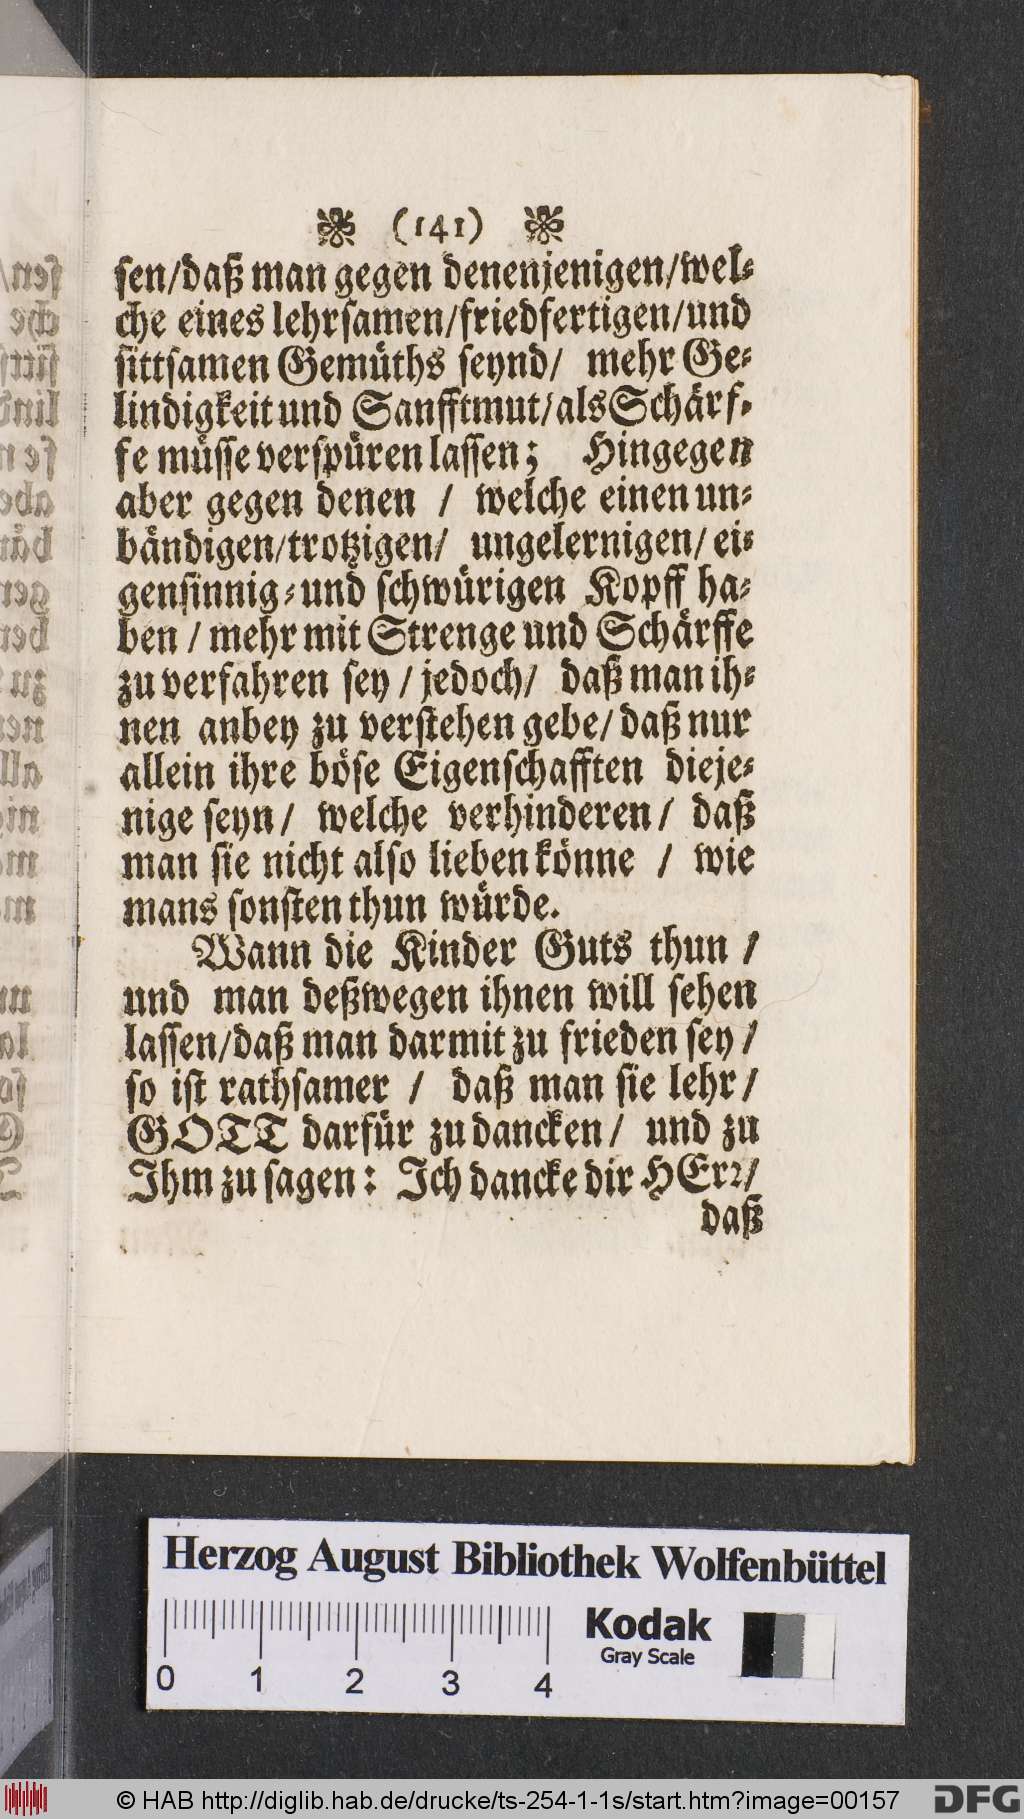 (141)
sen/daß man gegen denenjenigen/wel⸗
che eines lehrsamen/friedfertigen/und
sittsamen Gemüths seynd/ mehr Ge⸗
lindigkeit und Sanfftmut/als Schärf⸗
fe müsse verspüren lassen; Hingegen
aber gegen denen / welche einen un⸗
bändigen/trotzigen/ ungelernigen/ ei⸗
gensinnig⸗und schwürigen Kopff ha⸗
ben / mehr mit Strenge und Schärffe
zu verfahren sey / jedoch/ daß man ih⸗
nen anbey zu verstehen gebe/ daß nur
allein ihre böse Eigenschafften dieje⸗
nige seyn/ welche verhinderen/ daß
man sie nicht also lieben könne / wie
mans sonsten thun würde.
Wann die Kinder Guts thun /
und man deßwegen ihnen will sehen
lassen/daß man darmit zu frieden sey /
so ist rathsamer / daß man sie lehr/
GOTT darfür zu dancken/ und zu
Ihm zu sagen: Ich dancke dir HErr/
daß
Herzog August Bibliothek Wolfenbüttel
Kodak
Gray Scale
0 1 2 3 4
© HAB http://diglib.hab.de/drucke/ts-254-1-1s/start.htm?image=00157
DFG